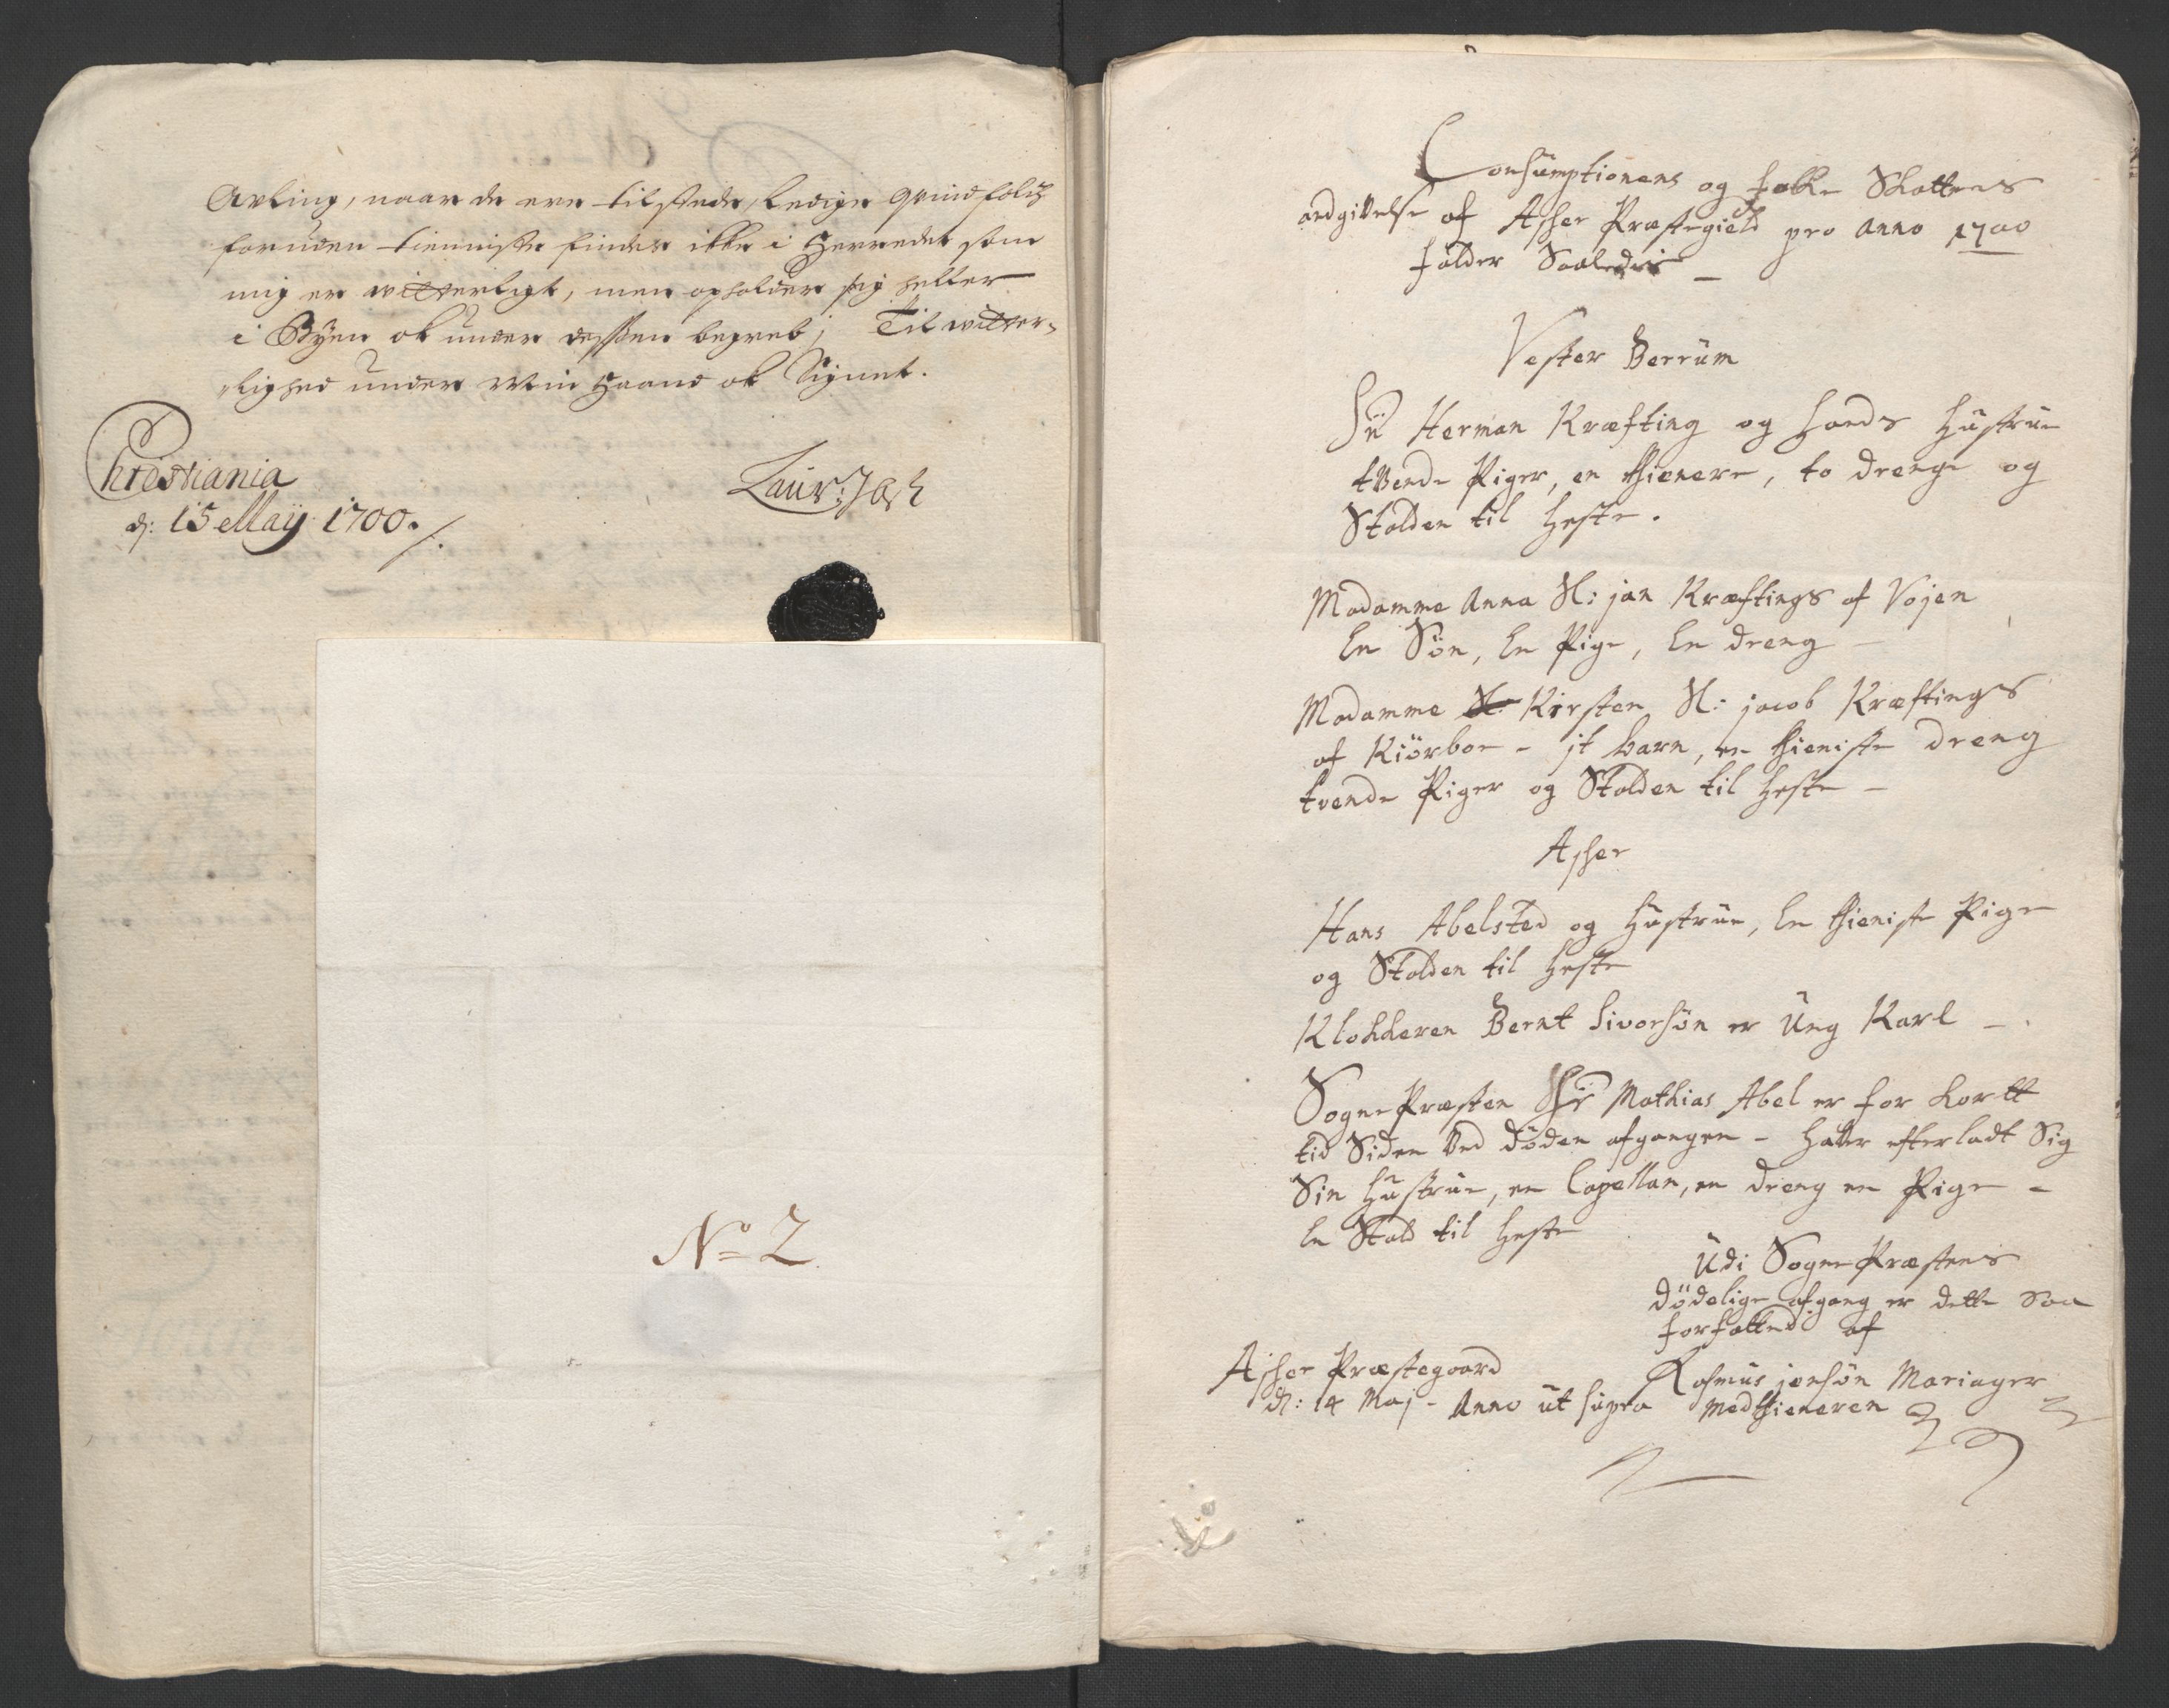 Avling, naar de ere tilstede, Ledige qvindfolch
foruden tienniste findes ikke i Herredet som
mig er witterligt, men opholder sig heller
i Byen ok under desssen begreb; Til witter-
lighed under Min Haand ok Signet.
Christiania
d: 15 Maij 1700./.
Laur:
No 2
Consumptionens og folke Skattens
andgivelse af Asker Præstegield pro Anno 1700
falder Saaledis
Vester Berrum
Sr Herman Kræfting og Hands Hustrue
tvende Piger, en thienere, to drenge og
Stalden til Heste.
Madamme Anna Sl: jan Kræftings af Vøjen
En Søn, En Pige, En dreng
Madamme Kirsten Sl: jacob Kræftings
af Kiørboe - jt barn, en thieniste dreng
tvende Piger og Stalden til Heste -
Asker
Hans Abelsted og Hustrue, En thieniste Pige
og Stalden til Heste
Klokkeren Bernt Sivorsøn er Ung Karl -
SognePræsten Hr Mathias Abel er for kortt
tid Siden Ved døden afgangen - Haver efterladt Sig
Sin Hustrue, en Capellan, en dreng en Pige -
En Stald til Heste
Udi SognePræstens
dødelige afgang er dette saa
forfatted af
Asker Præstegaard
d: 14 Maj - Anno ut supra
Rasmus jensøn Mariager
Medthieneren